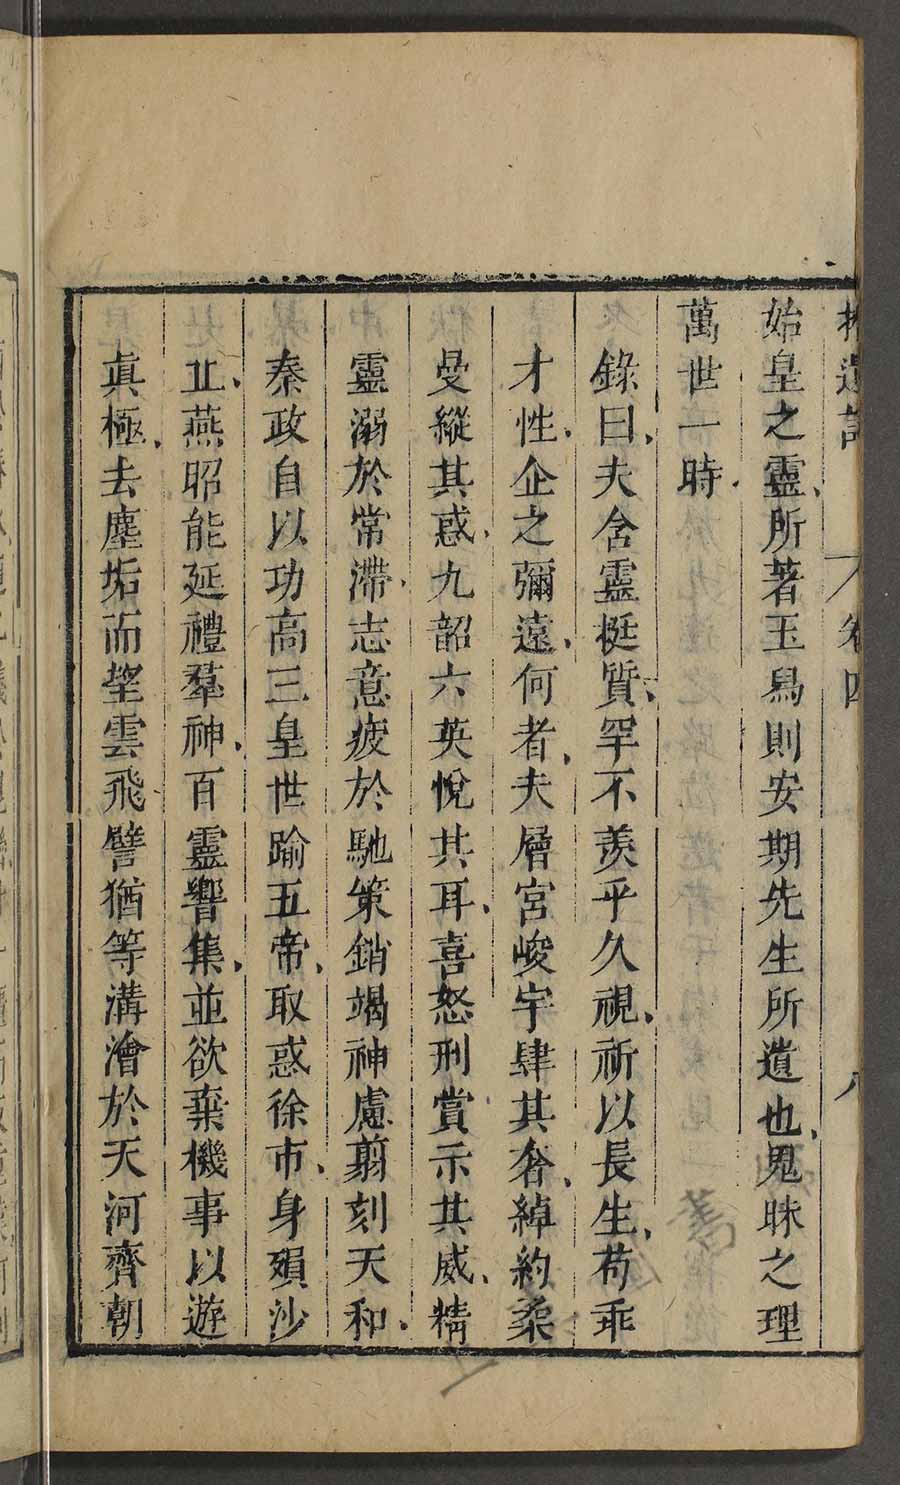 拾遺記 卷四 八
始皇之靈所著玉舃則安期先生所遺也鬼昧之理
萬世一時
錄曰夫含靈挺質罕不羨乎久視祈以長生苟乖
才性企之彌遠何者夫層宮峻宇肆其奢綽約柔
曼縱其惑九韶六英悅其耳喜怒刑賞示其威精
靈溺於常滯志意疲於馳策銷竭神慮翦刻天和
秦政自以功高三皇世踰五帝取惑徐市身殞沙
丘燕昭能延禮羣神百靈響集並欲棄機事以遊
眞極去塵垢而望雲飛譬猶等溝澮於天河齊朝